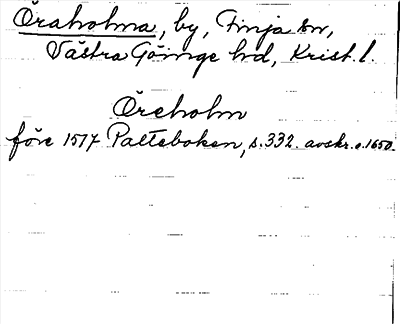 Öraholma, by, Finja sn,
Västra Göinge hd, Krist. l.
Öreholm
före 1517 Palteboken, s. 332. avskr. c. 1650.